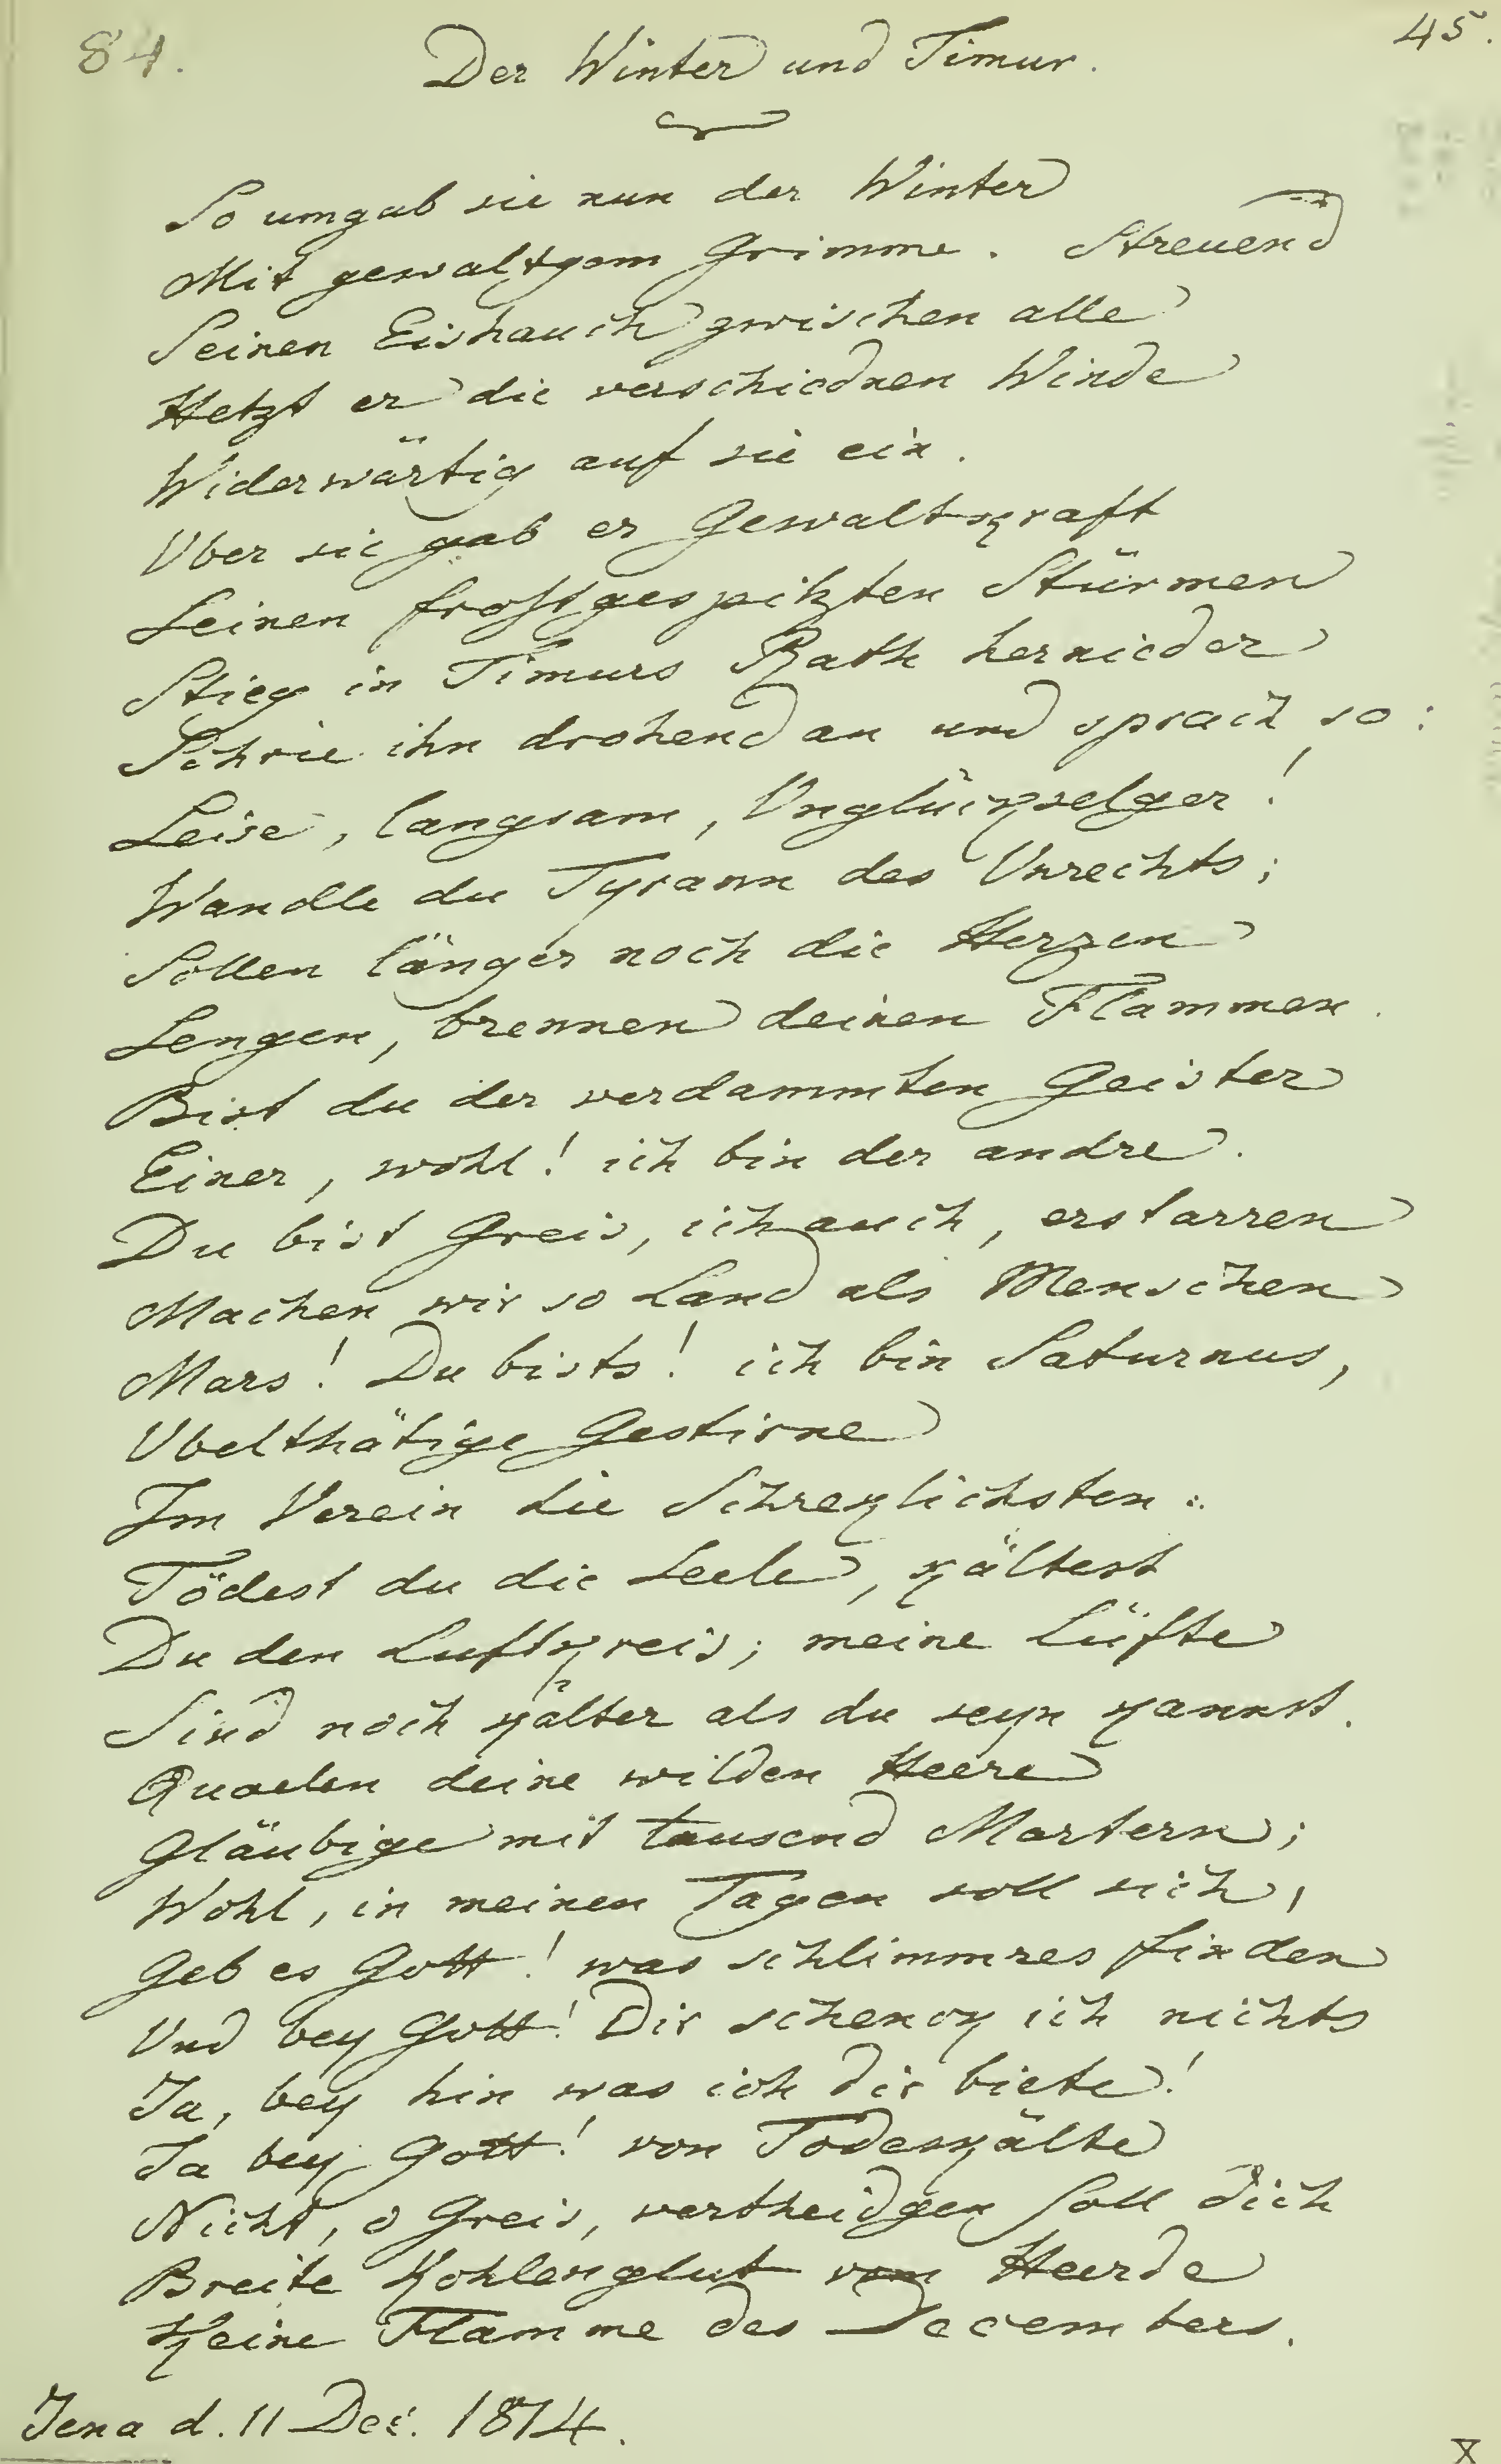 84.
45.
Der Winter und Timur.
So umgab sie nun der Winter
Mit gewaltgem Grimme. Streuend
Seinen Eishauch zwischen alle
Hetzt er die verschiednen Winde
Widerwärtig auf sie ein.
Über sie gab er Gewaltkraft
Seinen frostgespitzten Stürmen
Stieg in Timurs Rath hernieder
Schrie ihn drohend an und sprach so:
Leise, langsam, Unglückselger!
Wandle du Tyrann des Unrechts;
Sollen länger noch die Herzen
Sengen, brennen deinen Flammen.
Bist du der verdammten Geister
Einer, wohl! ich bin der andre.
Du bist Greis, ich auch, erstarren
Machen wir so Land als Menschen
Mars! Du bists! ich bin Saturnus,
Übelthätige Gestirne
Im Verein die Schreklichsten:
Tödest du die Seele, kältest
Du den Luftkreis; meine Lüfte
Sind noch kälter als du seyn kannst.
Quaelen deine wilden Heere
Gläubige mit tausend Martern;
Wohl, in meinen Tagen soll sich,
Geb es Gott! was schlimmres finden
Und bey Gott! Dir schenck ich nichts
Ja, bey hin was ich dir biete!
Ja bey Gott! von Todeskälte
Nicht, o Greis, vertheidgen soll dich
Breite Kohlenglut vom Heerde
Keine Flamme des Decembers.
Jena d. 11 Dec. 1814.
X